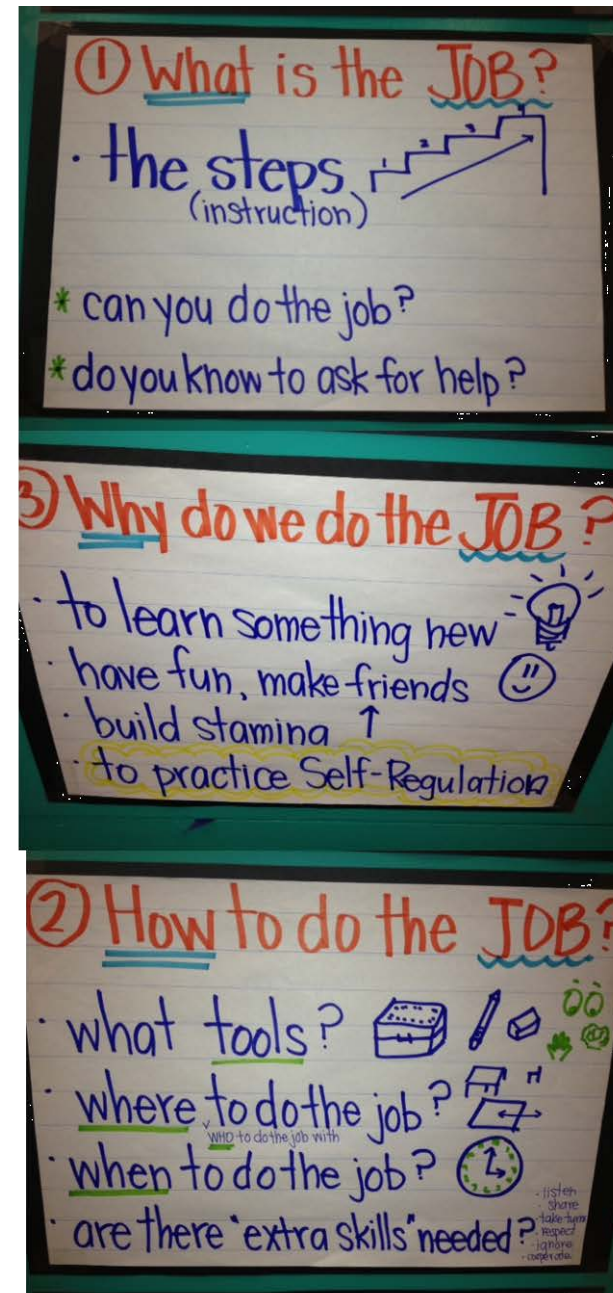 ① What is the JOB?
· the steps
(instruction)
1
2
3
* can you do the job?
* do you know to ask for help?
3 Why do we do the JOB?
· to learn something new
· have fun, make friends
· build stamina ↑
· to practice Self-Regulation
② How to do the JOB?
· what tools?
· where to do the job?
WHO to do the job with
· when to do the job?
· are there "extra skills" needed?
· listen
· share
· take turns
· respect
· ignore
· cooperate